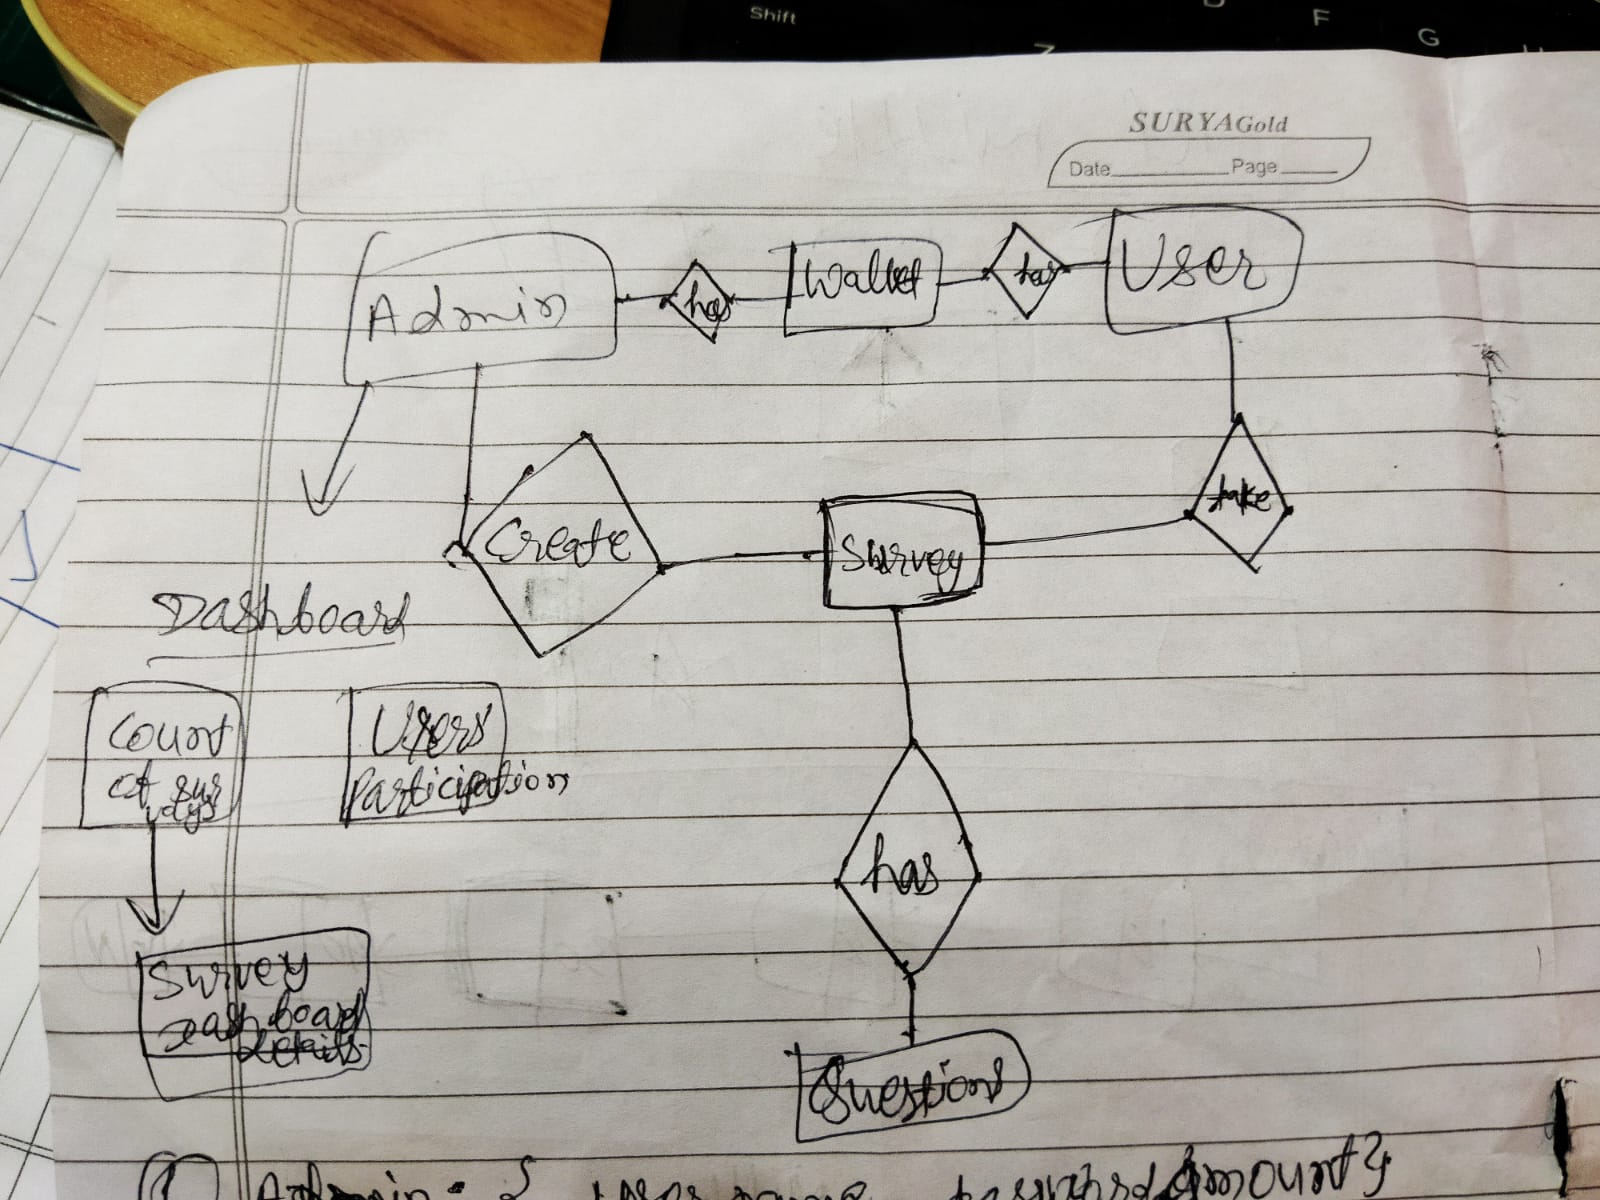 Shift
D
F
G
Z
SURYAGold
Date Page
Admin
has
Wallet
has
User
Create
Survey
take
Dashboard
Count
of sur
veys
Users
Participation
has
Survey
Dashboard
details
Questions
① Admin : { user name, password, Amount }